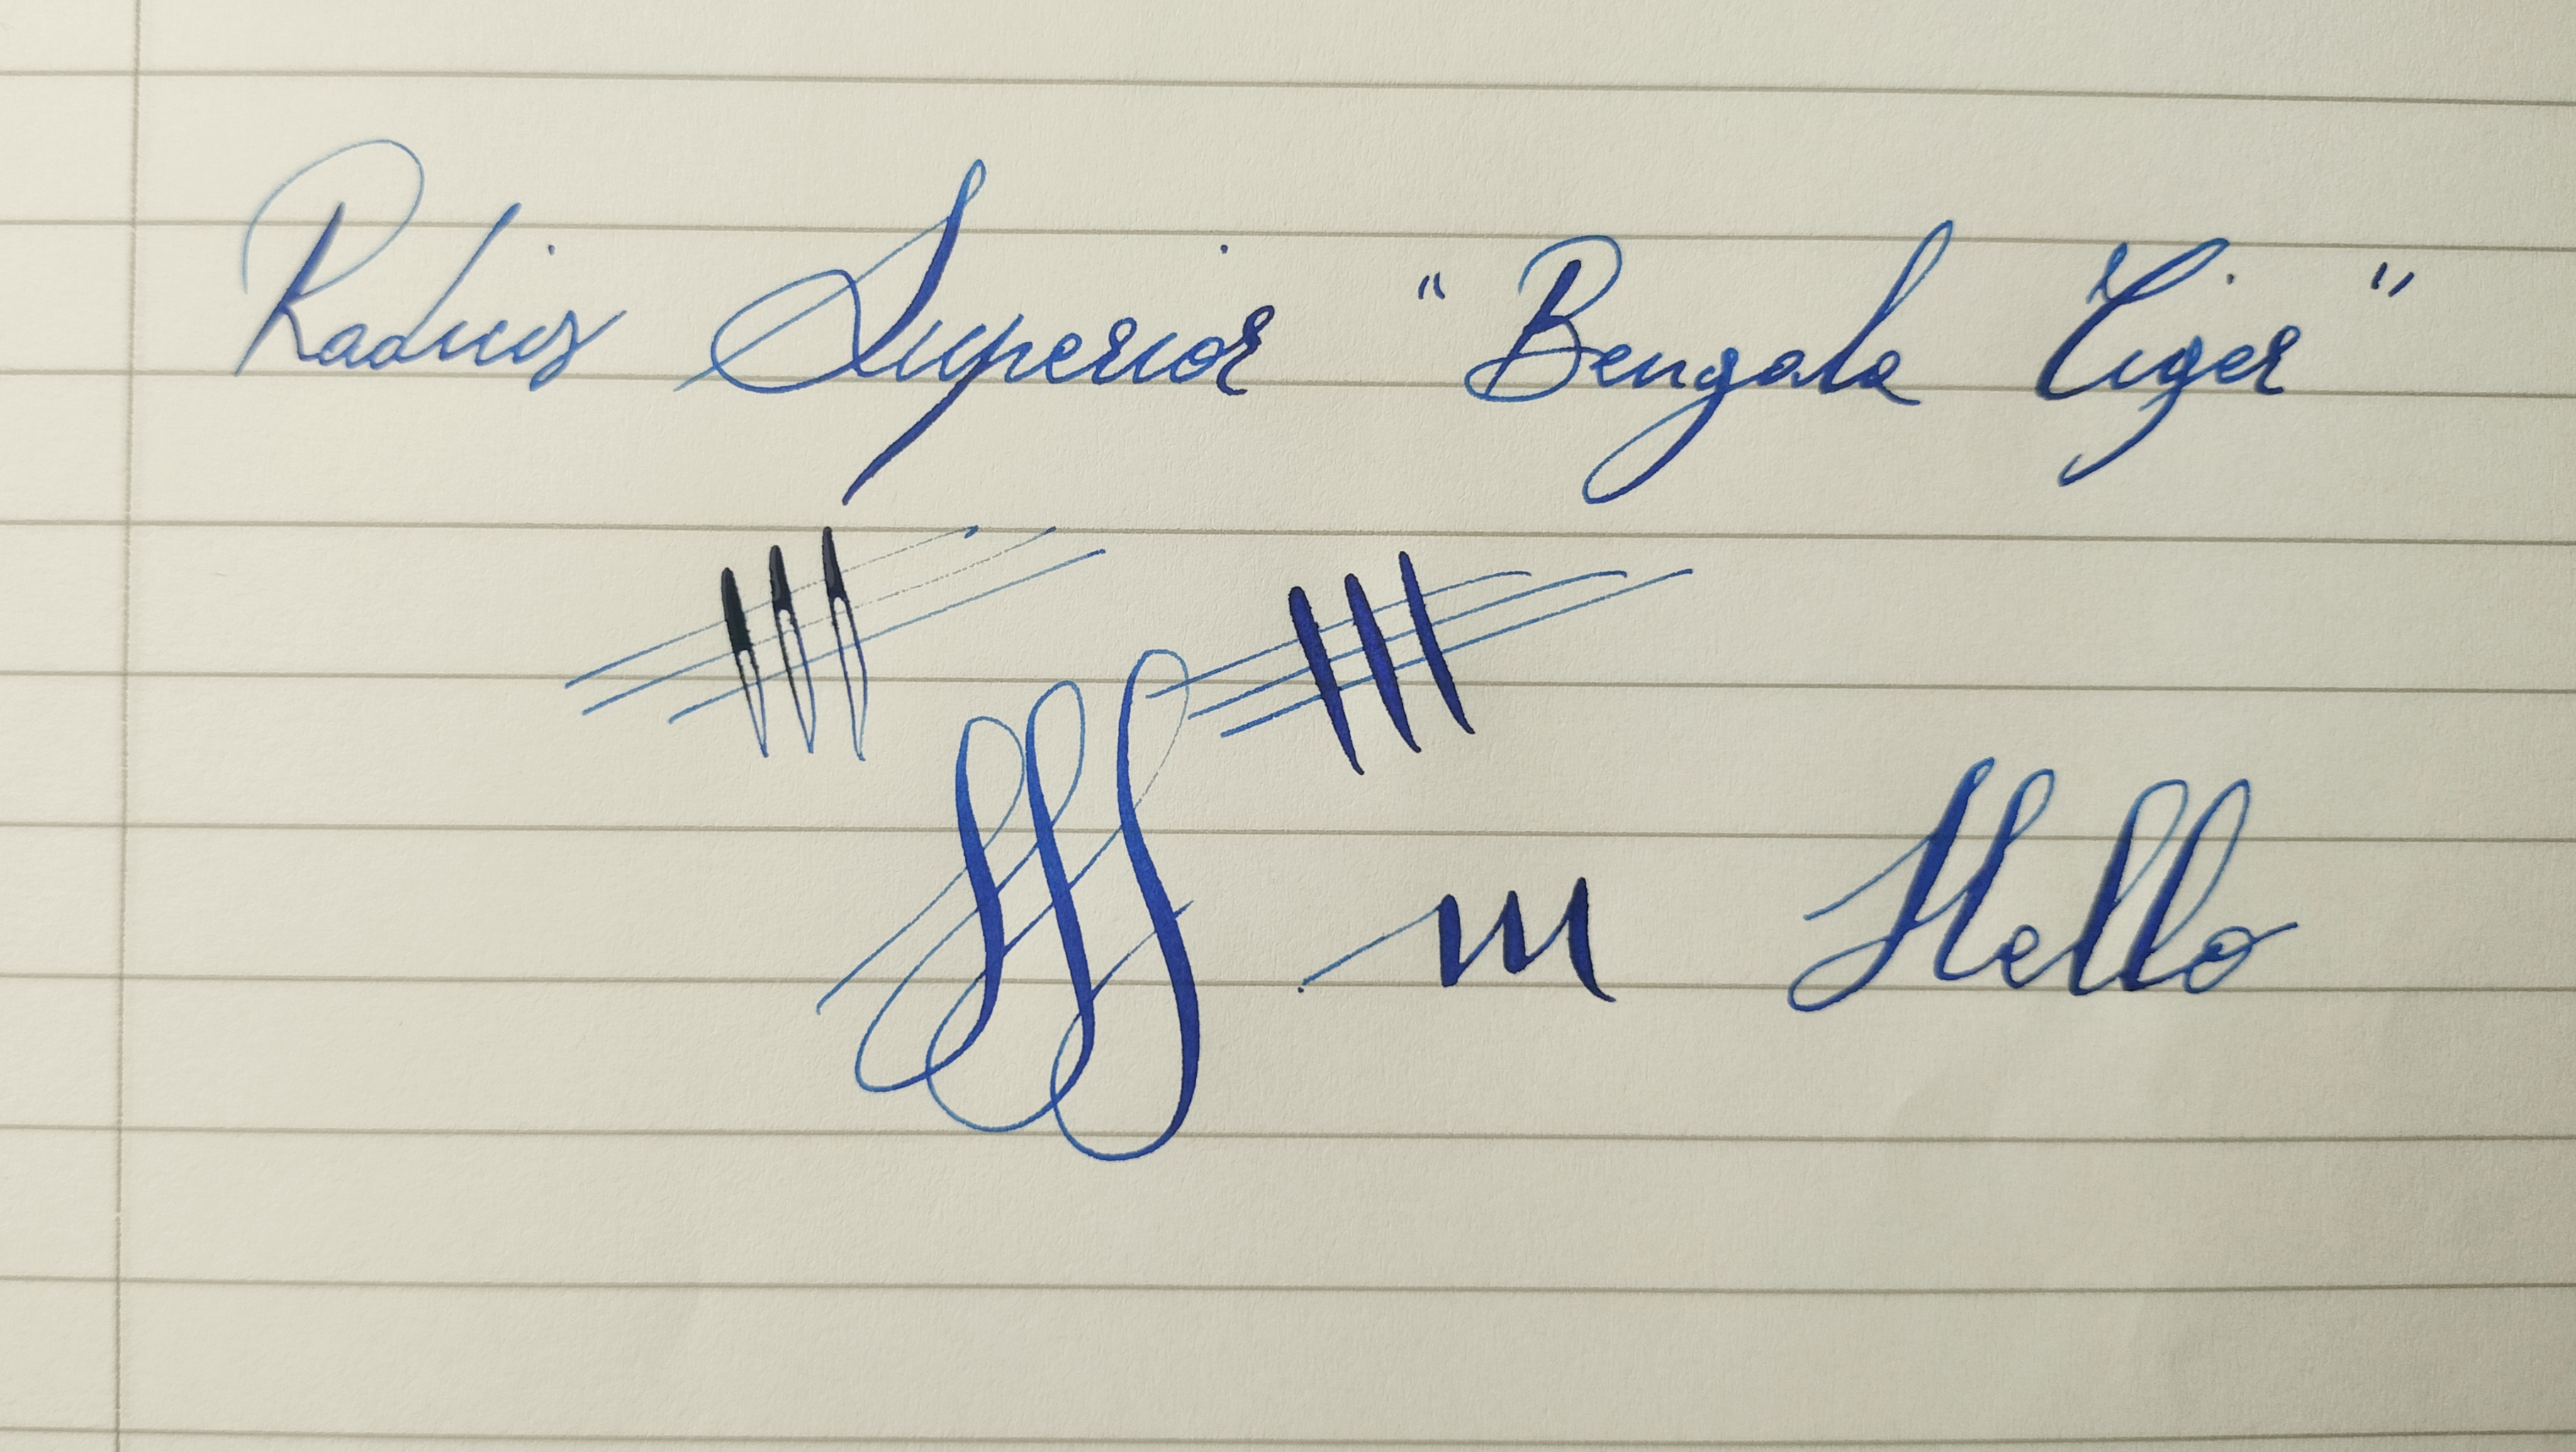 Radius Superior "Bengala Tiger"
m Hello